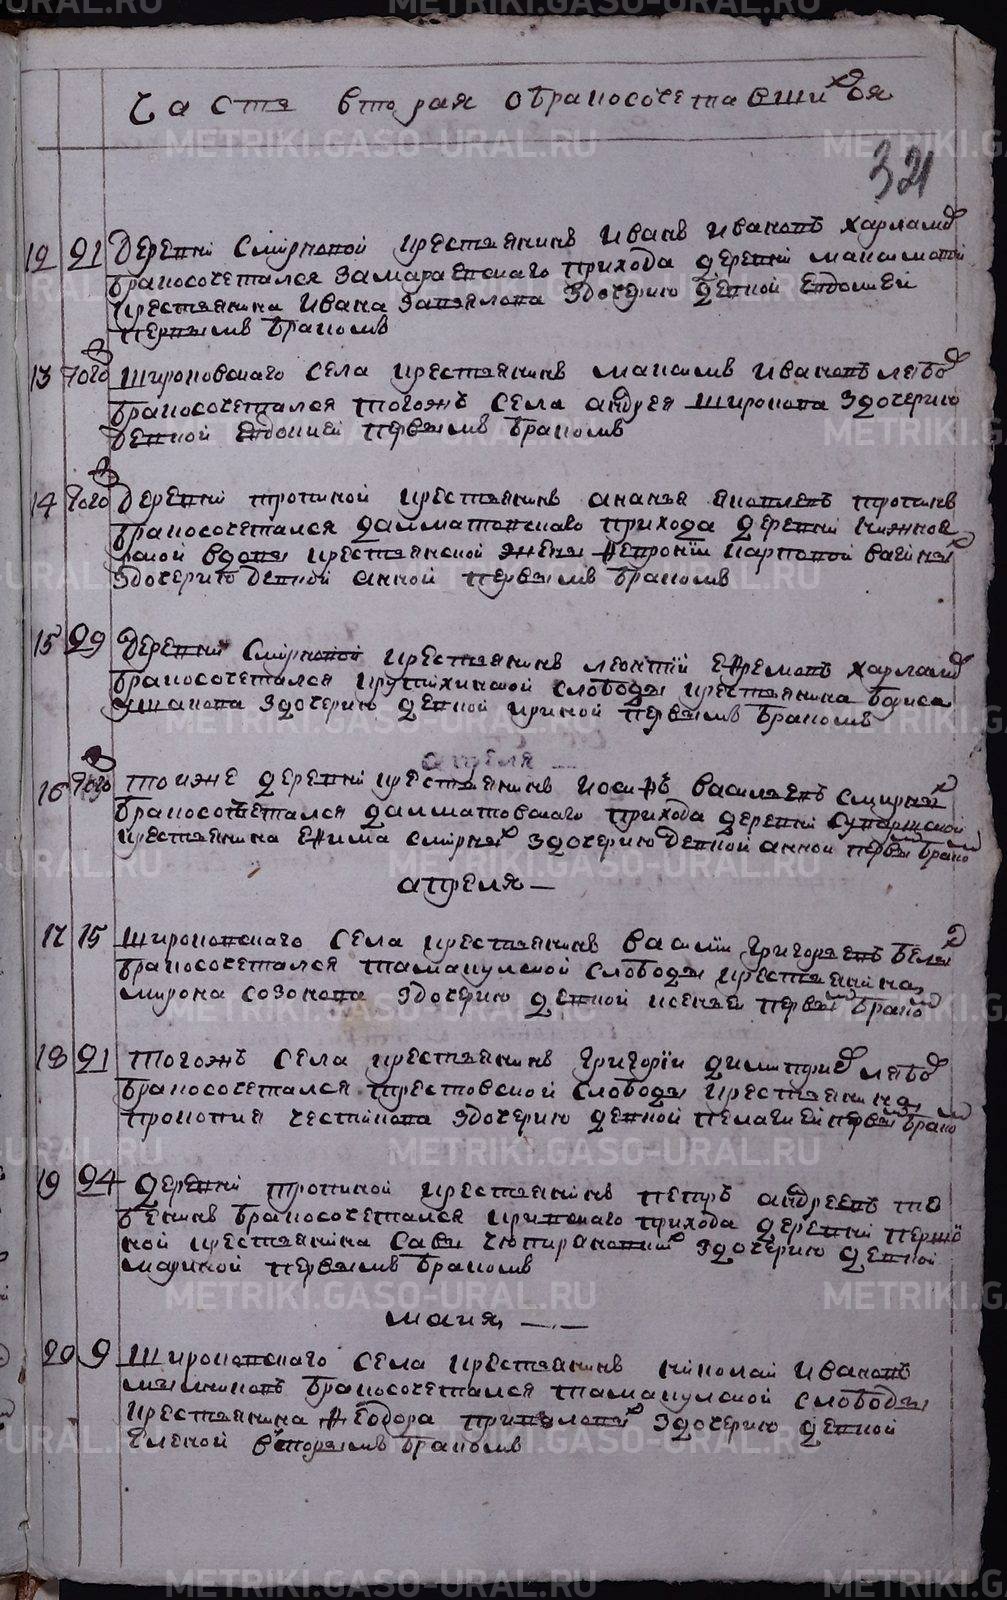 Часть вторая о бракосочетавшихся
321
12 21 деревни Смирновой крестьянинъ Иванъ Ивановъ Харламов
бракосочетался Замараевского прихода деревни Максимовой
крестьянина Ивана Завьялова здочерию девкой Евдокией
первымъ бракомъ
13 того Широковского села крестьянинъ Максимъ Ивановъ
бракосочетался тогожъ села Андрея Широкова здочерию
девкой Евдокией первымъ бракомъ
14 того деревни Тропиной крестьянинъ Ананья Яковлевъ Тропинъ
бракосочетался Далматовского прихода деревни
вдовы крестьянской жены Февронии Карповой
здочерию девкой Анной первымъ бракомъ
15 29 деревни Смирновой крестьянинъ Леонтий Ефремовъ Харламов
бракосочетался Крутихинской слободы крестьянина Бориса
Ушакова здочерию девкой Ириной первымъ бракомъ
апреля
16 того тояже деревни крестьянинъ Иосифъ Васильевъ Смирных
бракосочетался Далматовского прихода деревни
крестьянина Ефима Смирных здочерию девкой Анной первым браком
апреля
17 15 Широковского села крестьянинъ Василии Григорьевъ Белых
бракосочетался Тамакулской слободы крестьянина
Мирона Созонова здочерию девкой Ксеньей первым браком
18 21 тогожъ села крестьянинъ Григории Димитриев
бракосочетался Крестовской слободы крестьянина
Прокопия Честикова здочерию девкой Пелагией первым браком
19 24 деревни Тропиной крестьянинъ Петръ Андреевъ
бракосочетался Кривского прихода деревни
крестьянина Савы здочерию девкой
Мариной первымъ бракомъ
маия
20 9 Широковского села крестьянинъ Николай Ивановъ
Мельниковъ бракосочетался Тамакулской слободы
крестьянина Феодора здочерию девкой
Еленой вторымъ бракомъ
METRIKI.GASO-URAL.RU